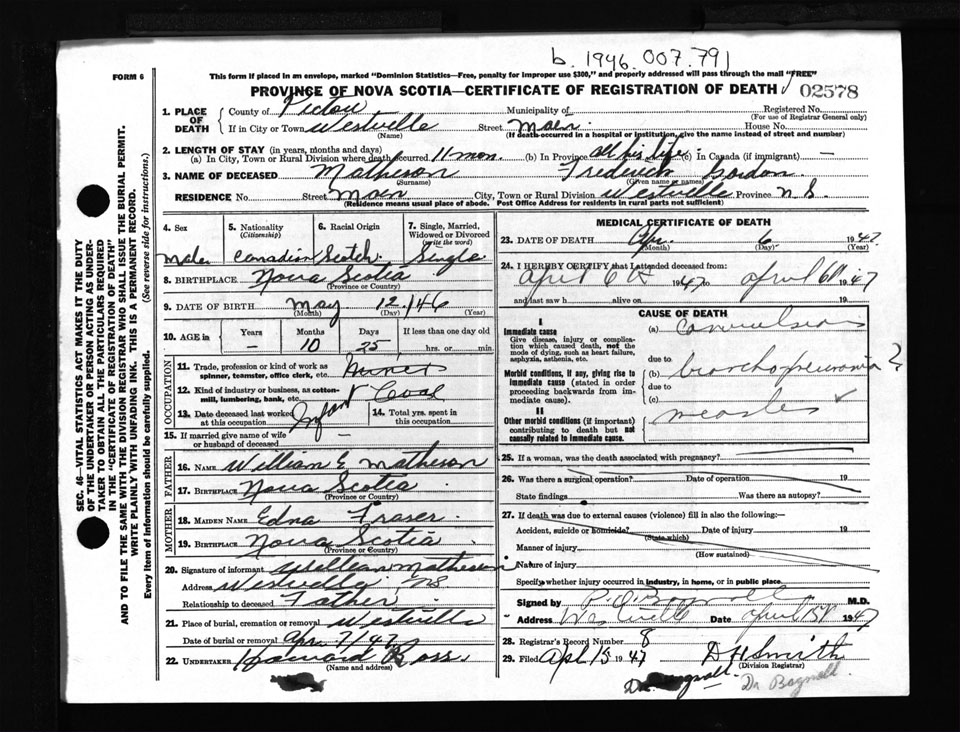 b. 1946.007.791
FORM 6
This form if placed in an envelope, marked "Dominion Statistics—Free, penalty for improper use $300," and properly addressed will pass through the mail "FREE"
PROVINCE OF NOVA SCOTIA—CERTIFICATE OF REGISTRATION OF DEATH
02578
1. PLACE OF DEATH
County of Pictou Municipality of Registered No.
(For use of Registrar General only)
If in City or Town Westville Street Main House No.
(Name) (If death occurred in a hospital or institution, give the name instead of street and number)
2. LENGTH OF STAY (in years, months and days)
(a) In City, Town or Rural Division where death occurred 11 mon. (b) In Province all his life (c) In Canada (if immigrant) —
3. NAME OF DECEASED Matheson Frederick Gordon
(Surname) (Given name or names)
RESIDENCE No. Street Main City, Town or Rural Division Westville Province N.S.
(Residence means usual place of abode. Post Office Address for residents in rural parts not sufficient)
4. Sex 5. Nationality (Citizenship) 6. Racial Origin 7. Single, Married, Widowed or Divorced (write the word)
Male Canadian Scotch Single
8. BIRTHPLACE Nova Scotia
(Province or Country)
9. DATE OF BIRTH May 12/46
(Month) (Day) (Year)
10. AGE in Years Months Days If less than one day old
— 10 25 hrs. or min.
OCCUPATION
11. Trade, profession or kind of work as spinner, teamster, office clerk, etc. Miner
12. Kind of industry or business, as cotton-mill, lumbering, bank, etc. Coal
13. Date deceased last worked at this occupation Infant 14. Total yrs. spent in this occupation
15. If married give name of wife or husband of deceased —
FATHER
16. NAME William E. Matheson
17. BIRTHPLACE Nova Scotia
(Province or Country)
MOTHER
18. MAIDEN NAME Edna Fraser.
19. BIRTHPLACE Nova Scotia
(Province or Country)
20. Signature of informant William Matheson
Address Westville NS
Relationship to deceased Father
21. Place of burial, cremation or removal Westville
Date of burial or removal Apr. 7/47
22. UNDERTAKER Howard Ross
(Name and address)
MEDICAL CERTIFICATE OF DEATH
23. DATE OF DEATH Apr. 6 1947
(Month) (Day)
24. I HEREBY CERTIFY that I attended deceased from:
April 6th 1947 to April 6th 1947
and last saw h alive on 19
CAUSE OF DEATH
I
Immediate cause
Give disease, injury or complication which caused death, not the mode of dying, such as heart failure, asphyxia, asthenia, etc.
(a) Convulsions
due to
Morbid conditions, if any, giving rise to immediate cause (stated in order proceeding backwards from immediate cause).
(b) bronchopneumonia ?
due to
(c)
II
Other morbid conditions (if important) contributing to death but not causally related to immediate cause.
measles ✓
25. If a woman, was the death associated with pregnancy?
26. Was there a surgical operation? Date of operation 19
State findings Was there an autopsy?
27. If death was due to external causes (violence) fill in also the following:—
Accident, suicide or homicide? Date of injury 19
(State which)
Manner of injury
(How sustained)
Nature of injury
Specify whether injury occurred in industry, in home, or in public place.
Signed by P.O. Bagnall M.D.
Address Westville Date April 15th 1947
28. Registrar's Record Number 8
29. Filed Apl 15 1947 D H Smith
(Division Registrar)
Dr. Bagnall.
Dr Bagnall.
SEC. 46—VITAL STATISTICS ACT MAKES IT THE DUTY
OF THE UNDERTAKER OR PERSON ACTING AS UNDER-
TAKER TO OBTAIN ALL THE PARTICULARS REQUIRED
IN THE "CERTIFICATE OF REGISTRATION OF DEATH"
AND TO FILE THE SAME WITH THE DIVISION REGISTRAR WHO SHALL ISSUE THE BURIAL PERMIT.
WRITE PLAINLY WITH UNFADING INK. THIS IS A PERMANENT RECORD.
Every item of information should be carefully supplied. (See reverse side for instructions.)